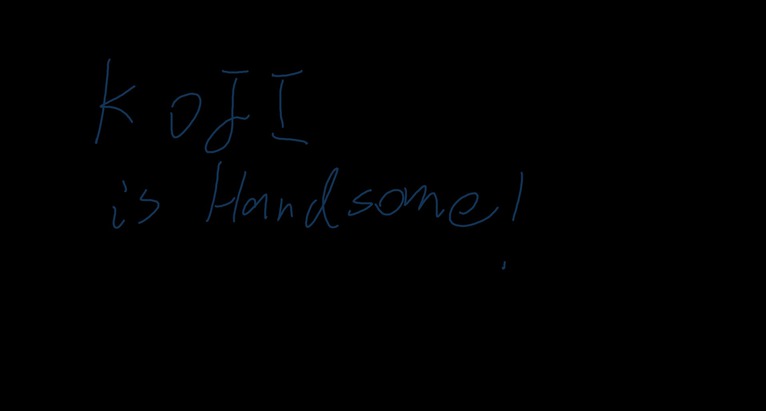 KOJI
is Handsome!